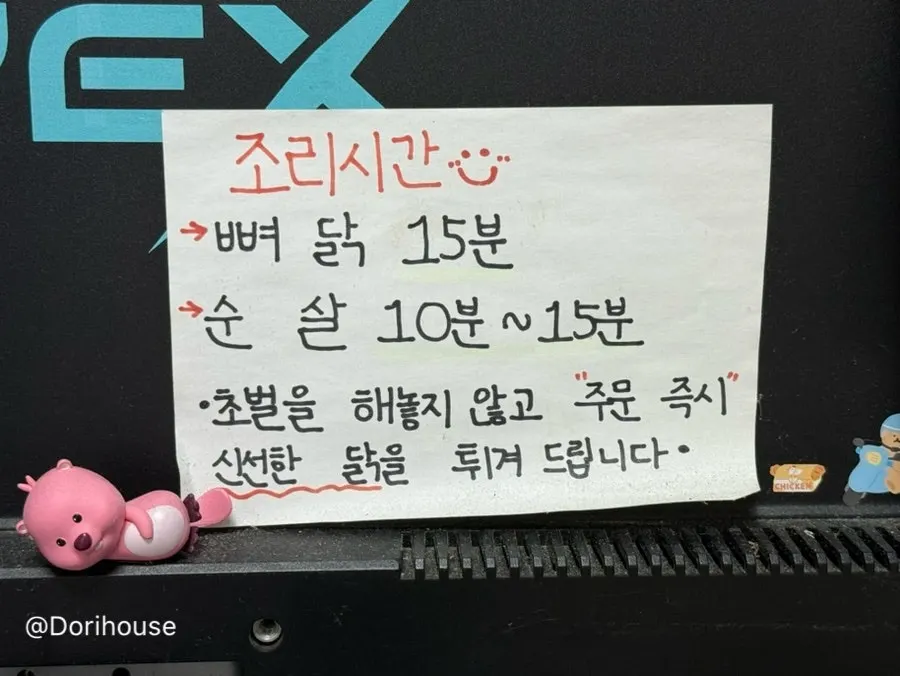 EX
조리시간
→뼈 닭 15분
→순 살 10분~15분
·초벌을 해놓지 않고 "주문 즉시"
신선한 닭을 튀겨 드립니다·
CHICKEN
@Dorihouse